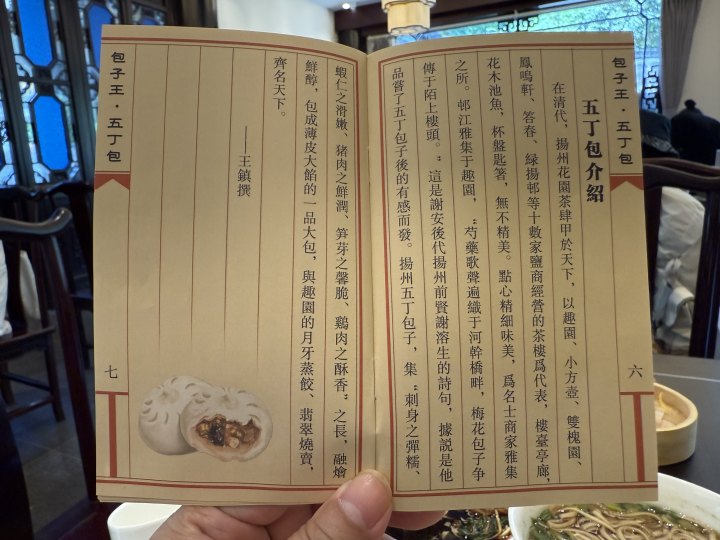 包子王·五丁包
五丁包介紹
在清代，揚州花園茶肆甲於天下，以趣園、小方壺、雙槐園、
鳳鳴軒、答春、綠揚邨等十數家鹽商經營的茶樓爲代表，樓臺亭廊，
花木池魚，杯盤匙箸，無不精美。點心精細味美，爲名士商家雅集
之所。邨江雅集于趣園，“芍藥歌聲遍織于河幹橋畔，梅花包子争
傳于陌上樓頭。”這是謝安後代揚州前賢謝溶生的詩句，據説是他
品嘗了五丁包子後的有感而發。揚州五丁包子，集“刺身之彈糯、
六
蝦仁之滑嫩、猪肉之鮮潤、笋芽之馨脆、鷄肉之酥香”之長，融燴
鮮醇，包成薄皮大餡的一品大包，與趣園的月牙蒸餃、翡翠燒賣，
齊名天下。
——王鎮撰
包子王·五丁包
七